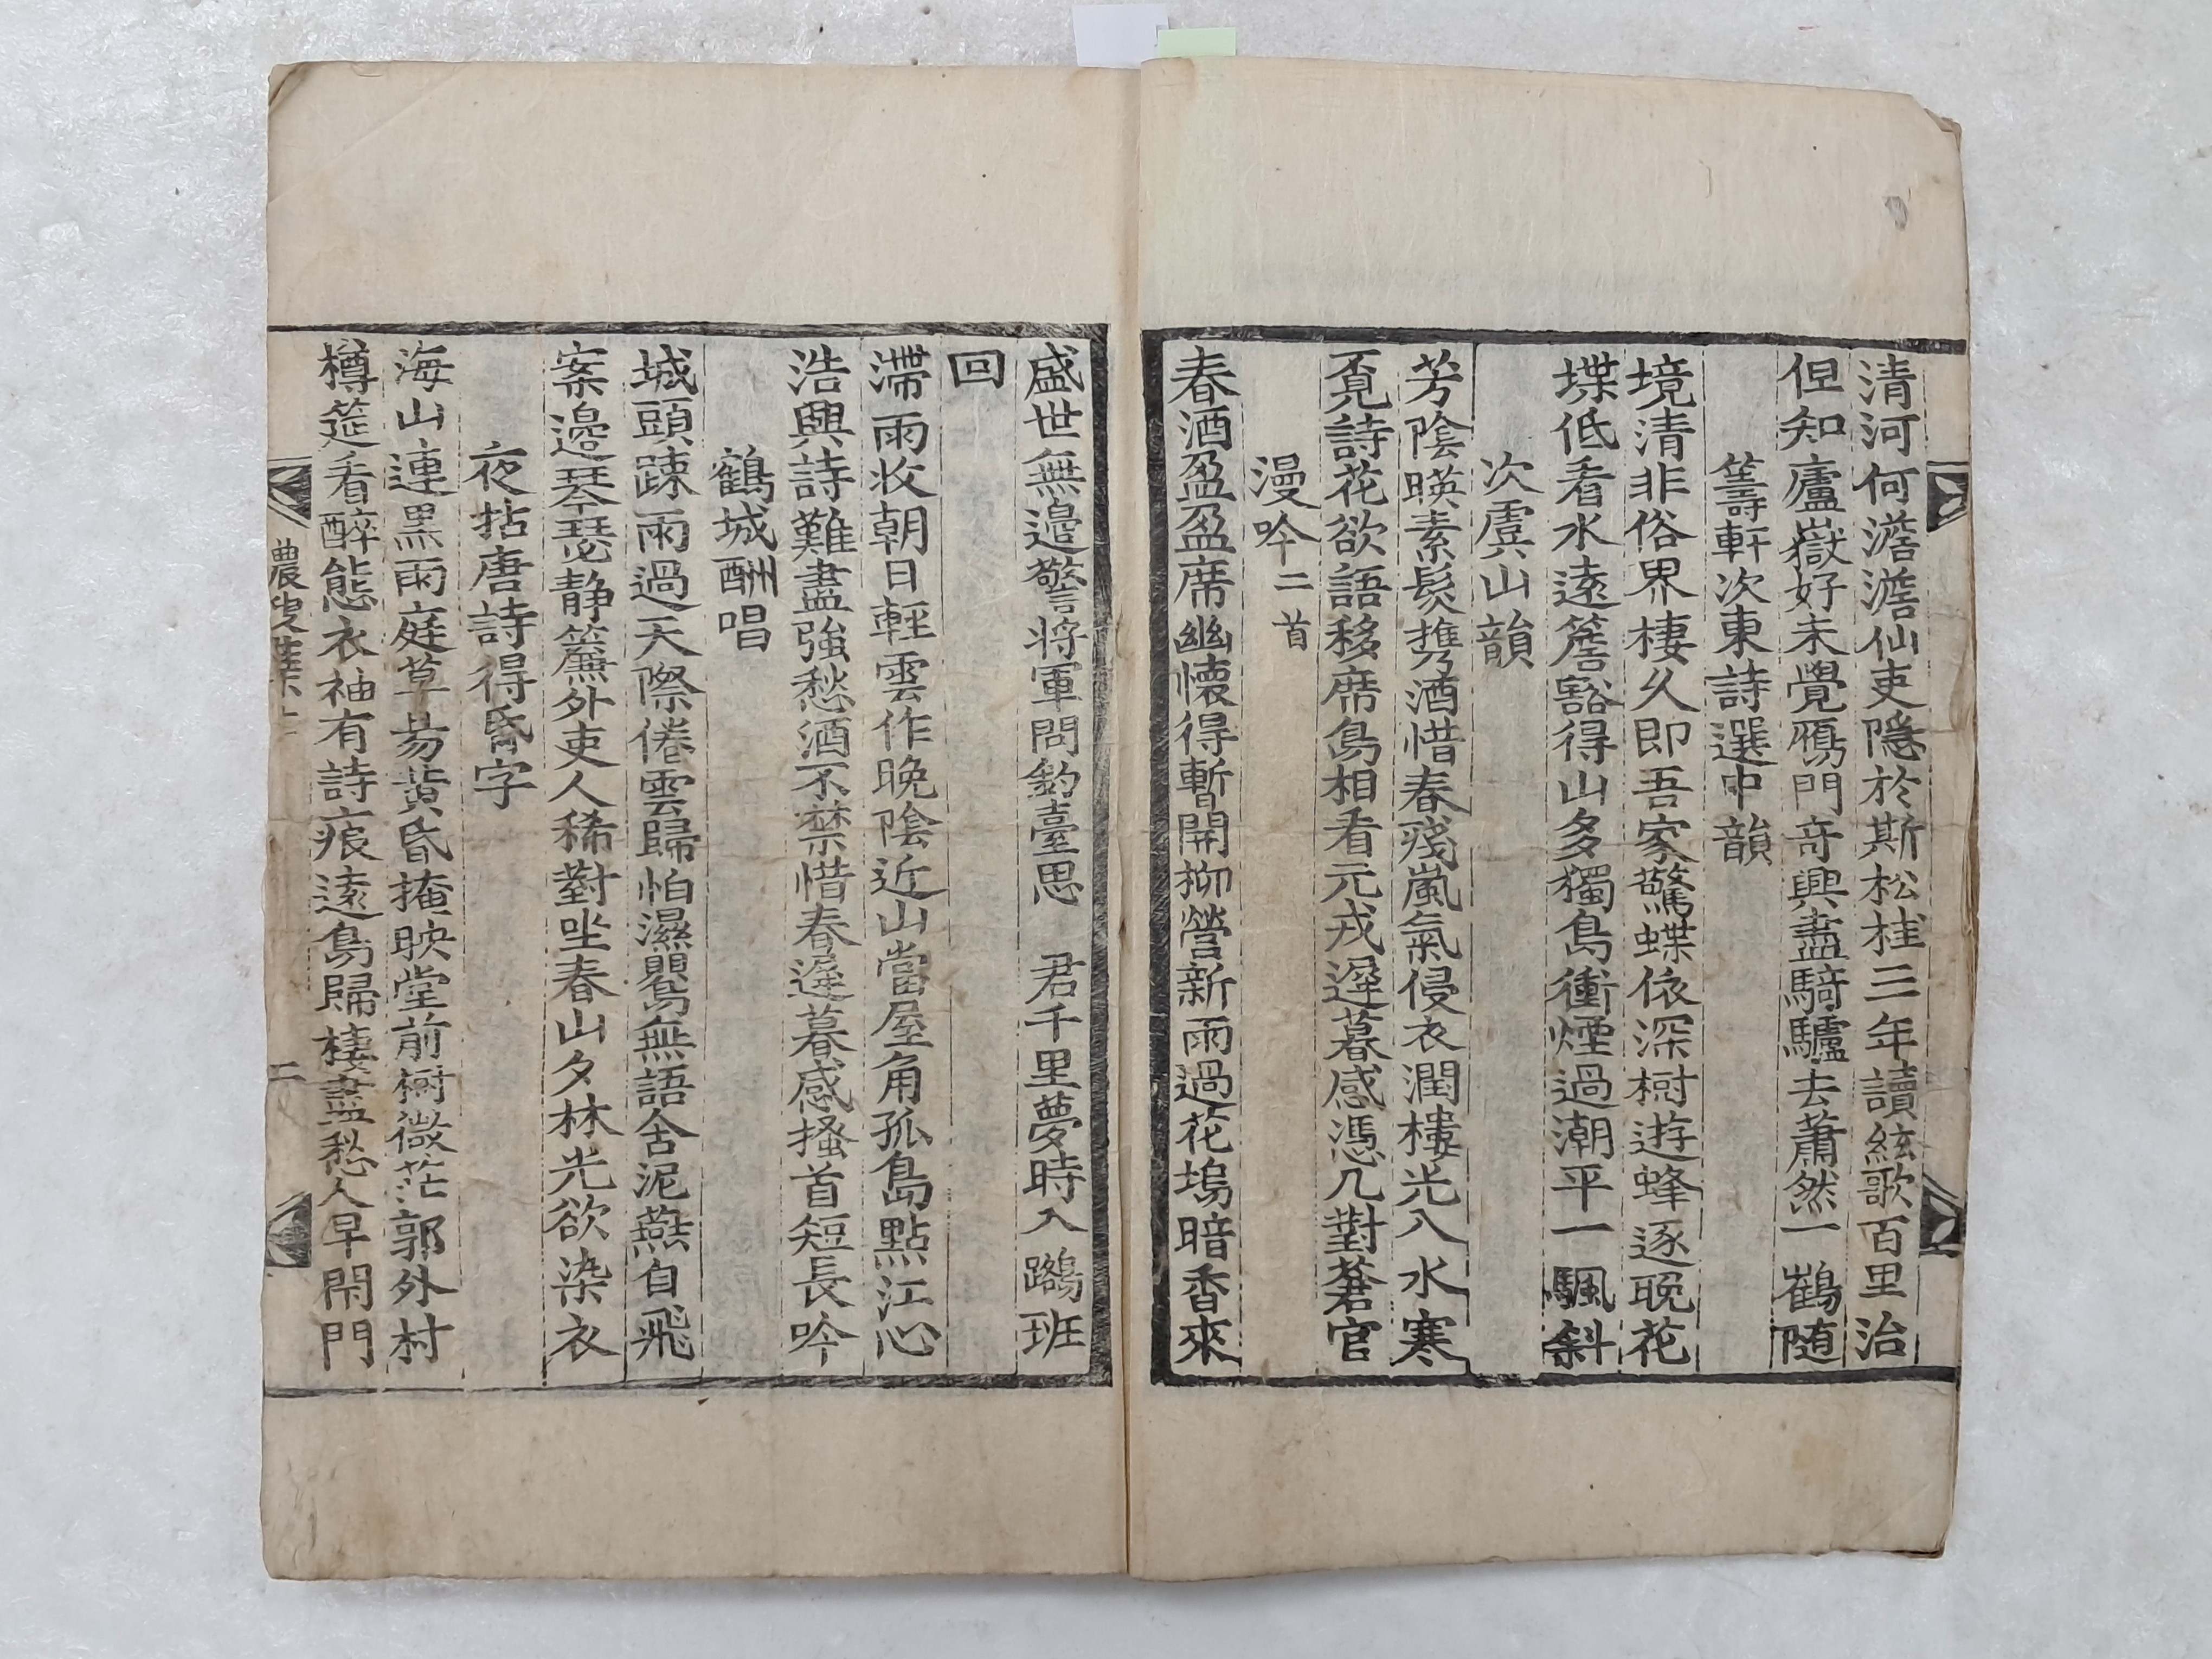 清河何澹澹仙吏隱於斯松桂三年讀絃歌百里治
但知廬嶽好未覺鴈門奇興盡騎驢去蕭然一鶴随
籌軒次東詩選中韻
境清非俗界棲久即吾家驚蝶依深樹遊蜂逐晩花
堞低看水遠簷豁得山多獨島衝煙過潮平一颿斜
次虞山韻
芳陰暎素髮携酒惜春殘嵐氣侵衣潤樓光入水寒
覔詩花欲語移席鳥相看元戎遲暮感憑几對蒼官
漫吟二首
春酒盈盈席幽懷得暫開柳營新雨過花塢暗香來
盛世無邊警將軍問釣臺思 君千里夢時入鵷班
回
滯雨收朝日輕雲作晩陰近山當屋角孤島點江心
浩興詩難盡強愁酒不禁惜春遲暮感搔首短長吟
鶴城酬唱
城頭踈雨過天際倦雲歸怕濕鸎無語含泥燕自飛
案邊琴瑟静簾外吏人稀對坐春山夕林光欲染衣
夜拈唐詩得昏字
海山連黒雨庭草易黄昏掩映堂前樹微茫郭外村
樽筵看醉態衣袖有詩痕遠鳥歸棲盡愁人早閉門
農叟集
二